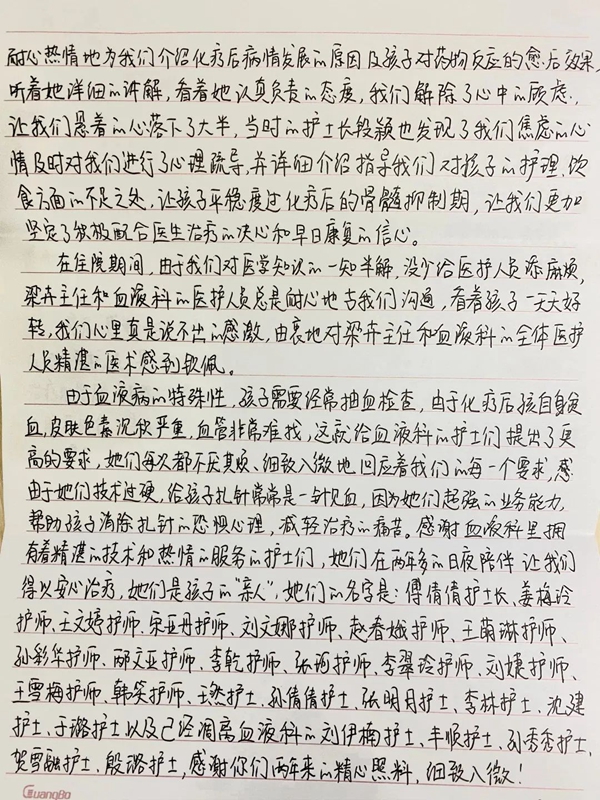 耐心热情地为我们介绍化疗后病情发展的原因及孩子对药物反应的愈后效果,
听着她详细的讲解,看着她认真负责的态度,我们解除了心中的顾虑,
让我们悬着的心落下了大半,当时的护士长段颖也发现了我们焦虑的心
情及时对我们进行了心理疏导,并详细介绍指导我们对孩子的护理、饮
食方面的不足之处,让孩子平稳度过化疗后的骨髓抑制期,让我们更加
坚定了积极配合医生治疗的决心和早日康复的信心。
在住院期间,由于我们对医学知识的一知半解,没少给医护人员添麻烦,
梁卉主任和血液科的医护人员总是耐心地与我们沟通,看着孩子一天天好
转,我们心里真是说不出的感激,由衷地对梁卉主任和血液科的全体医护
人员精湛的医术感到钦佩。
由于血液病的特殊性,孩子需要经常抽血检查,由于化疗后孩自身贫
血,皮肤色素沉积严重,血管非常难找,这就给血液科的护士们提出了更
高的要求,她们每次都不厌其烦、细致入微地回应着我们的每一个要求,感
由于她们技术过硬,给孩子扎针常常是一针见血,因为她们超强的业务能力,
帮助孩子消除扎针的恐惧心理,减轻治疗的痛苦。感谢血液科里拥
有着精湛的技术和热情的服务的护士们,她们在两年多的日夜陪伴让我们
得以安心治疗,她们是孩子的“亲人”,她们的名字是:傅倩倩护士长、姜梅玲
护师、王文婷护师、宋亚丹护师、刘文娜护师、赵春娥护师、王萌琳护师、
孙彩华护师、邴文亚护师、李乾护师、张珂护师、李翠玲护师、刘婕护师、
王雪梅护师、韩笑护师、王然护士、孙倩倩护士、张明月护士、李林护士、沈建
护士、于璐护士以及已经调离血液科的刘伊楠护士、丰顺护士、孙秀秀护士、
贺雪融护士、殷璐护士,感谢你们两年来的精心照料,细致入微!
GuangBo